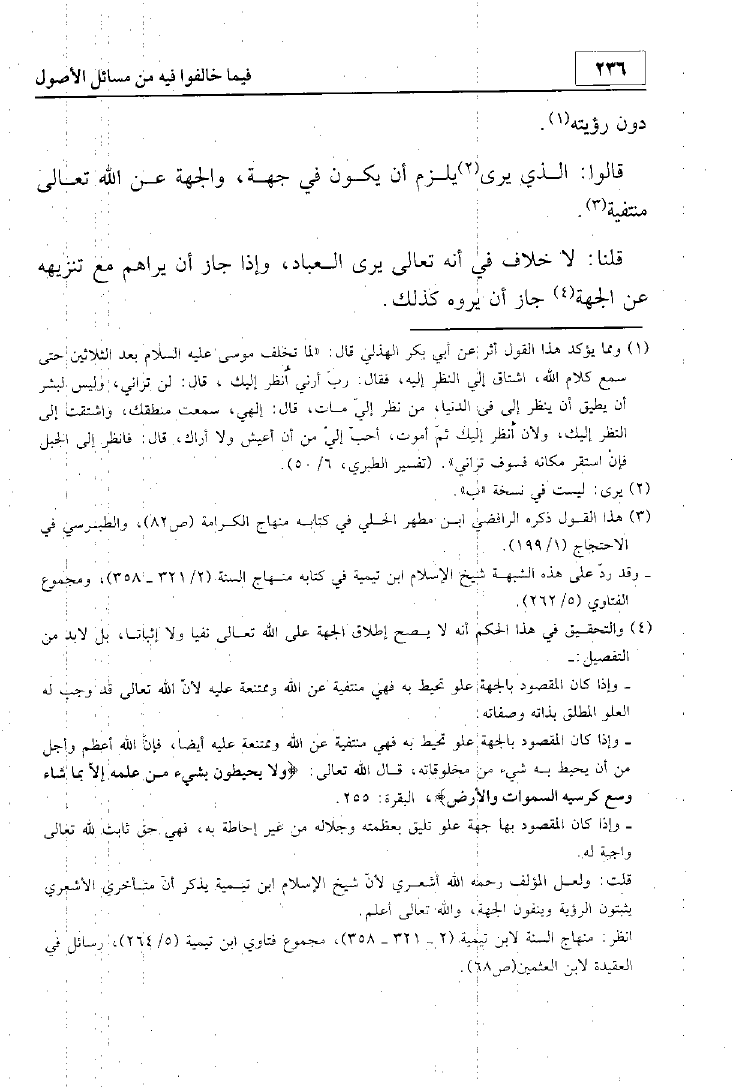 ٢٣٦
فيما خالفوا فيه من مسائل الأصول
دون رؤيته(١).
قالوا: الـذي يرى(٢)يلـزم أن يكـون في جهـة، والجهة عـن الله تعـالى
منتفية(٣).
قلنا: لا خلاف في أنه تعالى يرى العباد، وإذا جاز أن يراهم مع تنزيهه
عن الجهة(٤) جاز أن يروه كذلك.
(١) ومما يؤكد هذا القول أثر عن أبي بكر الهذلي قال: «لما تخلف موسى عليه السلام بعد الثلاثين حتى
سمع كلام الله، اشتاق إلى النظر إليه، فقال: ربّ أرني أنظر إليك، قال: لن تراني، وليس لبشر
أن يطيق أن ينظر إلى في الدنيا، من نظر إليّ مـات، قال: إلهي، سمعت منطقك، واشتقت إلى
النظر إليك، ولأن أنظر إليك ثمّ أموت، أحب إليّ من أن أعيش ولا أراك، قال: فانظر إلى الجبل
فإنْ استقر مكانه فسوف تراني». (تفسير الطبري، ٥٠/٦).
(٢) يرى: ليست في نسخة «ب».
(٣) هذا القول ذكره الرافضي ابـن مطهر الحلي في كتابـه منهاج الكرامة (ص٨٢)، والطبرسي في
الاحتجاج (١٩٩/١).
ـ وقد ردّ على هذه الشبهة شيخ الإسلام ابن تيمية في كتابه منهـاج السنة (٣٢١/٢ ـ ٣٥٨)، ومجموع
الفتاوي (٢٦٢/٥).
(٤) والتحقيق في هذا الحكم أنه لا يصح إطلاق الجهة على الله تعالى نفيا ولا إثباتـا، بل لابد من
التفصيل:ـ
ـ وإذا كان المقصود بالجهة علو تحيط به فهي منتفية عن الله وممتنعة عليه لأنّ الله تعالى قد وجب له
العلو المطلق بذاته وصفاته.
ـ وإذا كان المقصود بالجهة علو تحيط به فهي منتفية عن الله وممتنعة عليه أيضا، فإنَّ الله أعظم وأجل
من أن يحيط بـه شيء من مخلوقاته، قـال الله تعالى: ﴿ولا يحيطون بشيء مـن علمه إلاّ بما شاء
وسع كرسيه السموات والأرض﴾، البقرة: ٢٥٥.
ـ وإذا كان المقصود بها جهة علو تليق بعظمته وجلاله من غير إحاطة به، فهي حق ثابت لله تعالى
واجبة له.
قلت: ولعل المؤلف رحمه الله أشعري لأنّ شيخ الإسلام ابن تيـمية يذكر أنّ متـأخري الأشعري
يثبتون الرؤية وينفون الجهة، والله تعالى أعلم.
انظر: منهاج السنة لابن تيمية (٢ ـ ٣٢١ ـ ٣٥٨)، مجموع فتاوي ابن تيمية (٢٦٤/٥)، رسائل في
العقيدة لابن العثمين(ص٦٨).